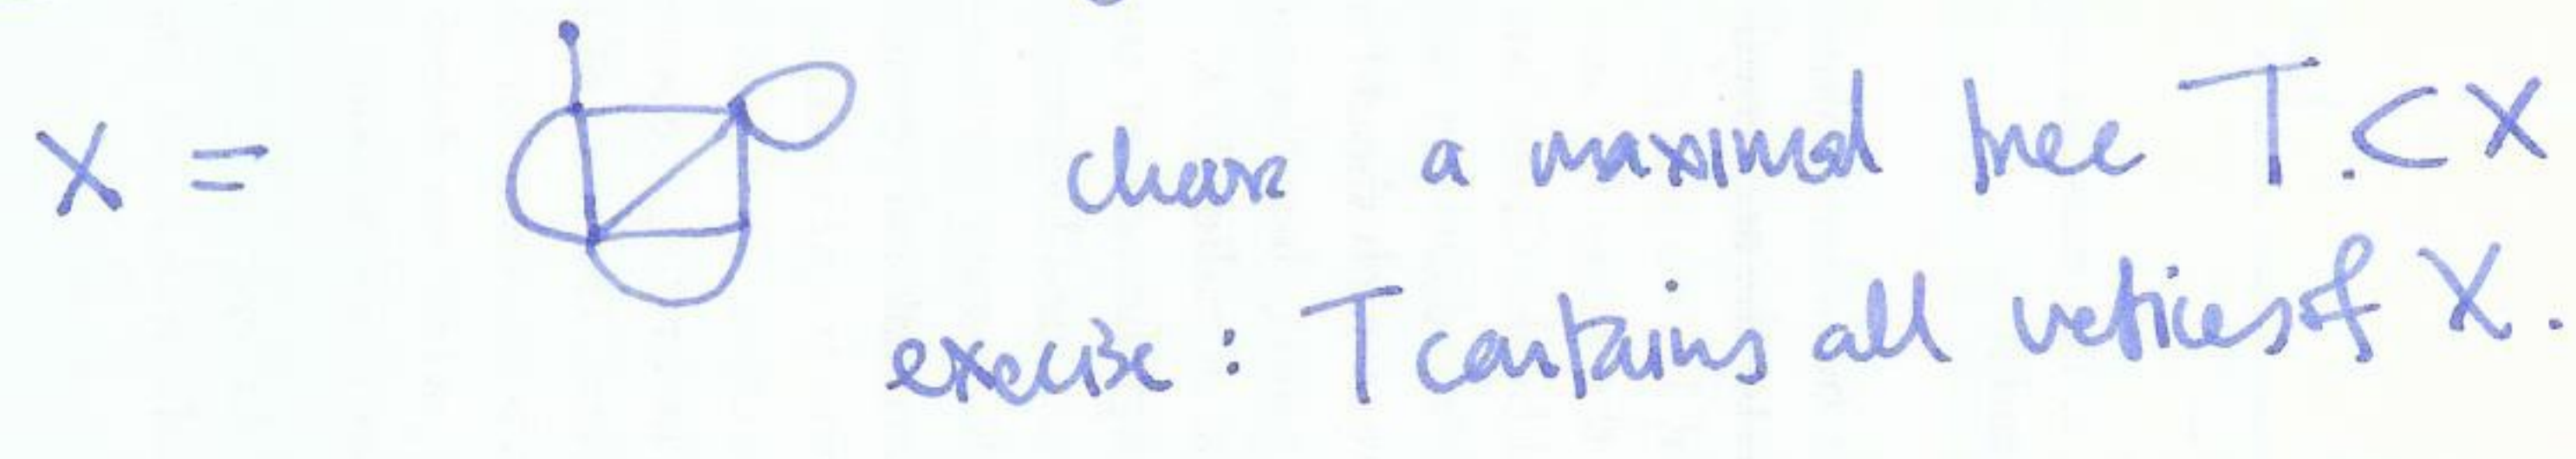 X = choose a maximal tree T. ⊂ X
exercise : T contains all vertices of X.